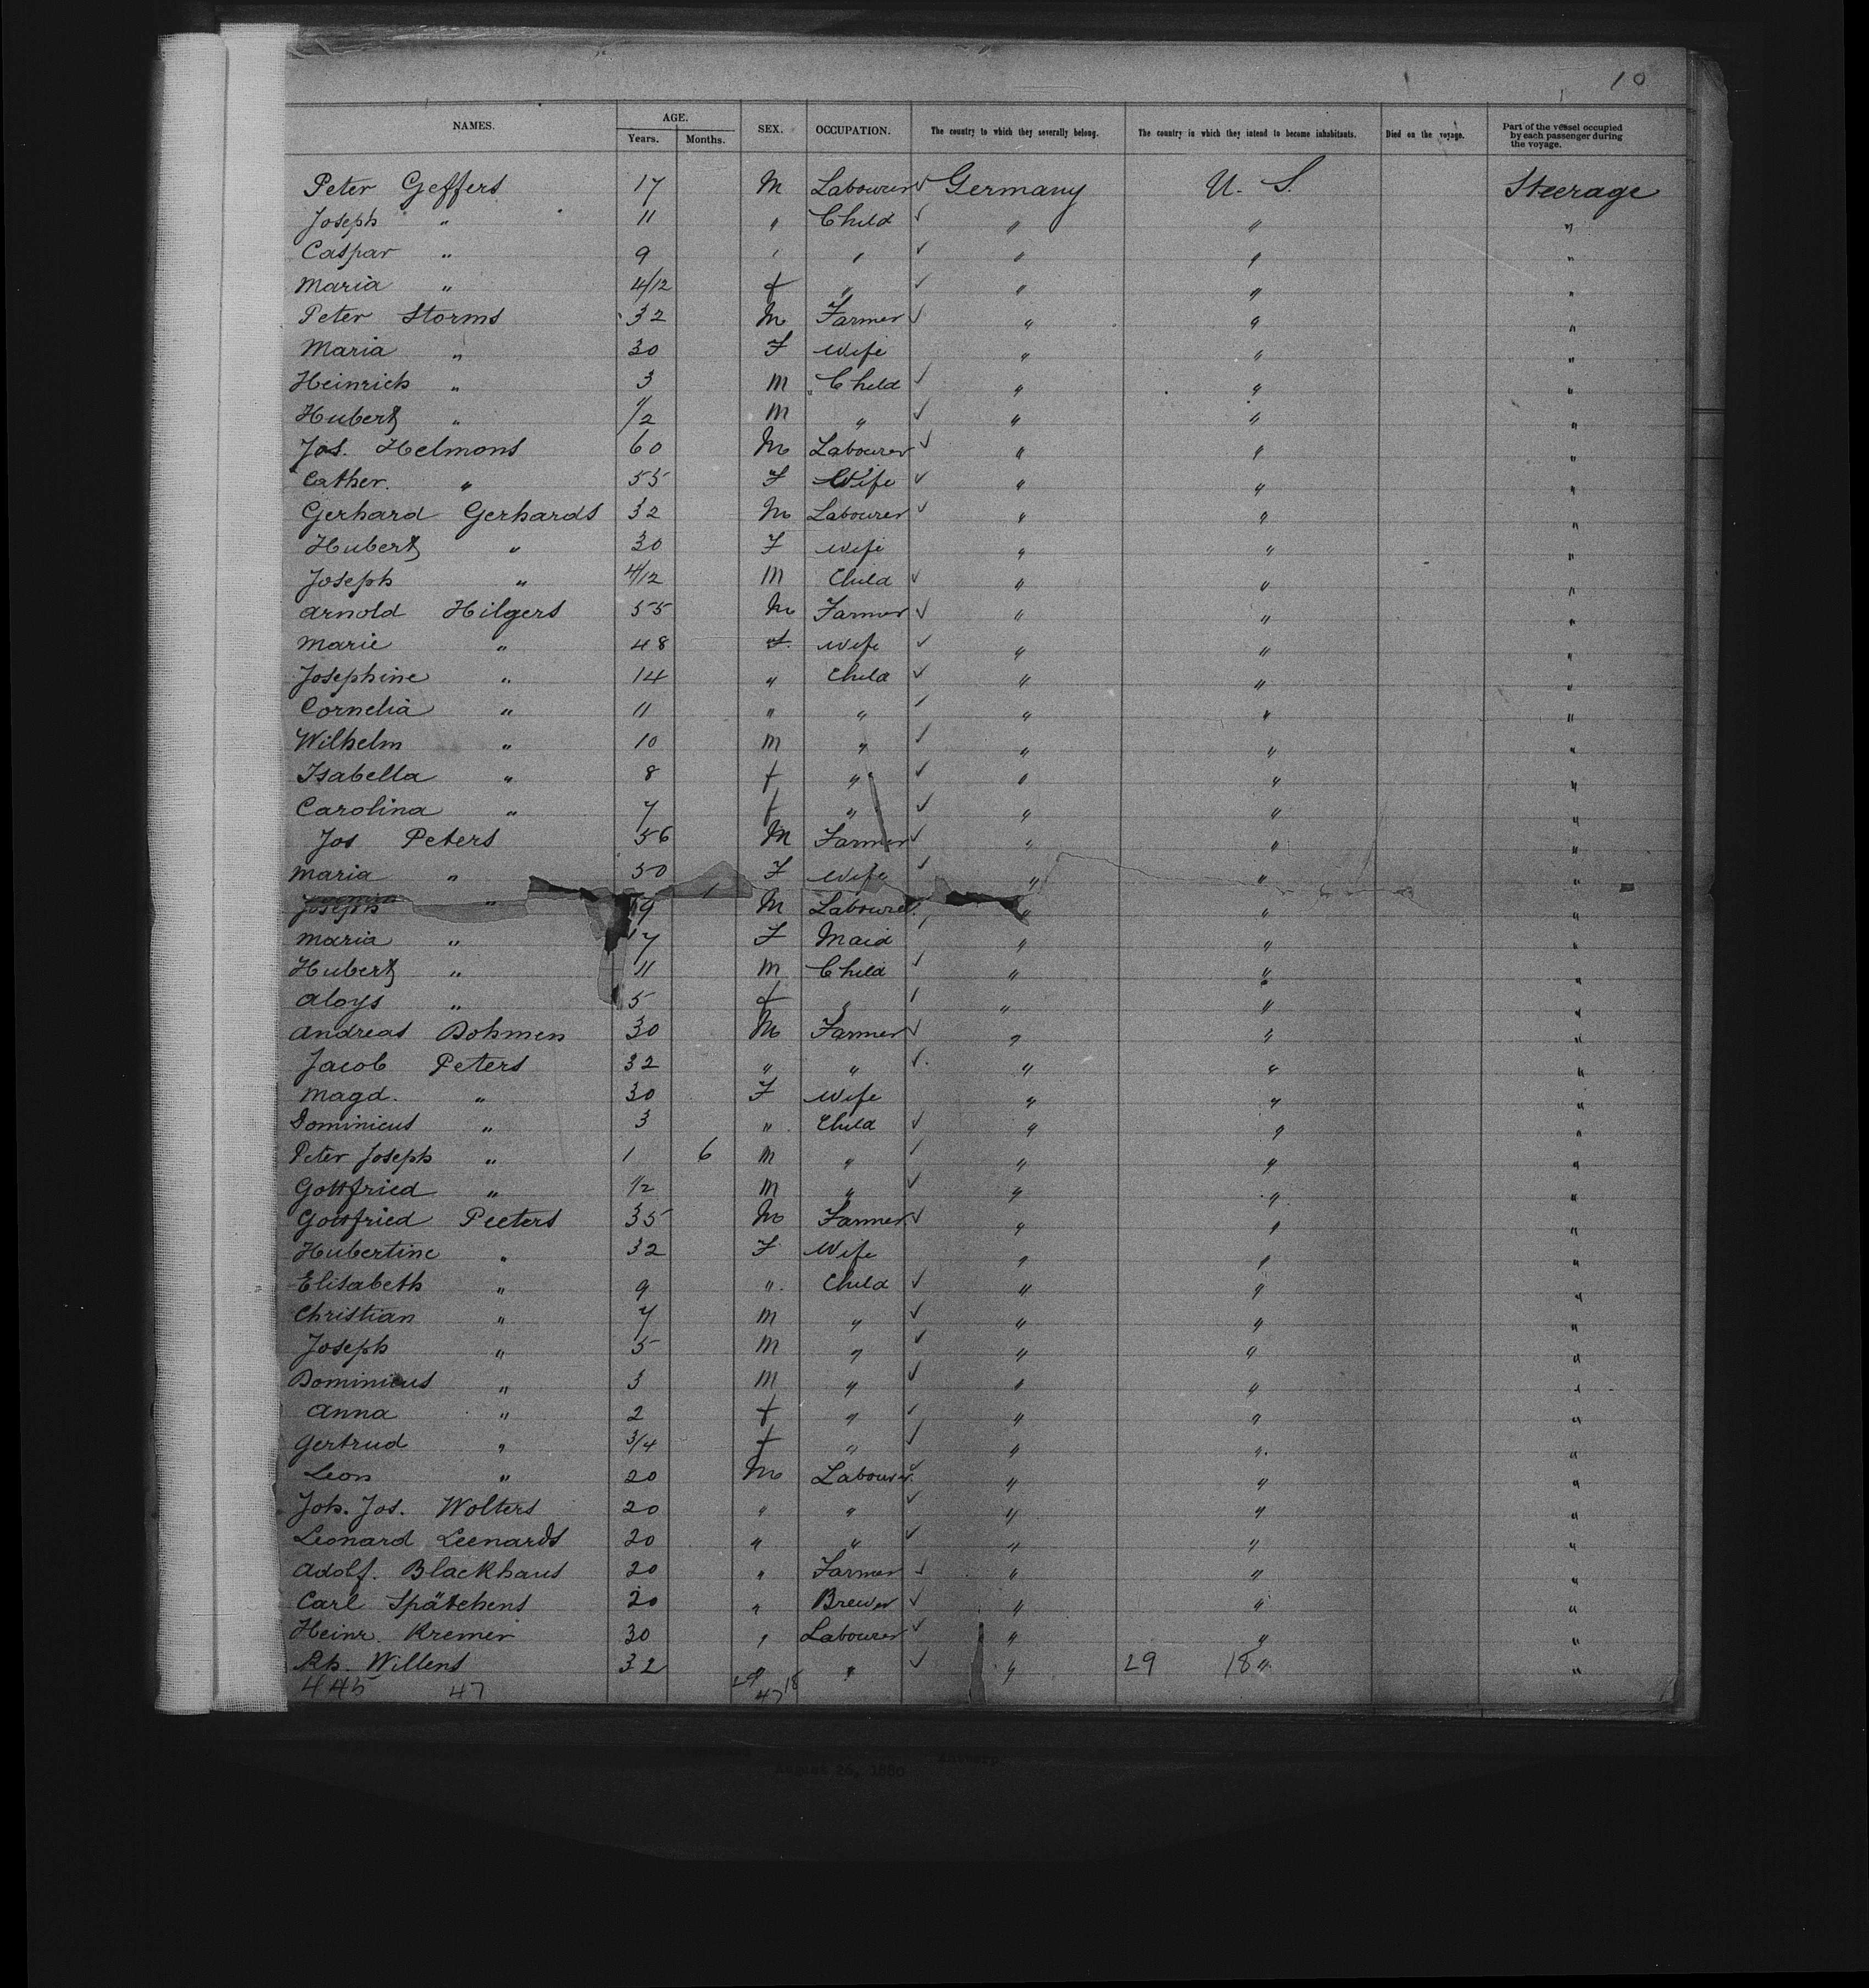 10
NAMES. AGE. Years. Months. SEX. OCCUPATION. The country to which they severally belong. The country in which they intend to become inhabitants. Died on the voyage. Part of the vessel occupied by each passenger during the voyage.
Peter Geffers 17 M Labourer ✓ Germany U. S. Steerage
Joseph " 11 " Child ✓ " " "
Caspar " 9 " " ✓ " " "
Maria " 4/12 f " ✓ " " "
Peter Storms 32 M Farmer ✓ " " "
Maria " 30 F Wife " " "
Heinrich " 3 M Child ✓ " " "
Hubert " 1/2 M " ✓ " " "
Jos. Helmons 60 M Labourer ✓ " " "
Cather. " 55 F Wife ✓ " " "
Gerhard Gerhards 32 M Labourer ✓ " " "
Hubert " 30 F Wife " " "
Joseph " 4/12 M Child ✓ " " "
Arnold Hilgers 55 M Farmer ✓ " " "
Marie " 48 f. Wife ✓ " " "
Josephine " 14 " Child ✓ " " "
Cornelia " 11 " " ✓ " " "
Wilhelm " 10 M " ✓ " " "
Isabella " 8 f " ✓ " " "
Carolina " 7 f " ✓ " " "
Jos Peters 56 M Farmer ✓ " " "
Maria " 50 F Wife ✓ " " "
Joseph " 19 M Labourer " " "
Maria " 17 F Maid ✓ " " "
Hubert " 11 M Child ✓ " " "
Aloys " 5 f " ✓ " " "
Andreas Dohmen 30 M Farmer ✓ " " "
Jacob Peters 32 " " ✓ " " "
Magd. " 30 F Wife " " "
Dominicus " 3 " Child ✓ " " "
Peter Joseph " 1 6 M " ✓ " " "
Gottfried " 1/2 M " ✓ " " "
Gottfried Peeters 35 M Farmer ✓ " " "
Hubertine " 32 F Wife " " "
Elisabeth " 9 " Child ✓ " " "
Christian " 7 M " ✓ " " "
Joseph " 5 M " ✓ " " "
Dominicus " 3 M " ✓ " " "
Anna " 2 f " ✓ " " "
Gertrud " 3/4 f " ✓ " " "
Leon " 20 M Labourer ✓ " " "
Joh. Jos. Wolters 20 " " ✓ " " "
Leonard Leenards 20 " " ✓ " " "
Adolf. Blackhaus 20 " Farmer ✓ " " "
Carl Spätchens 20 " Brewer ✓ " " "
Heinr. Kremer 30 " Labourer ✓ " " "
Rh. Willens 32 " " ✓ " 29 18 " "
445 47 29 18 47
August 26, 1880 Antwerp